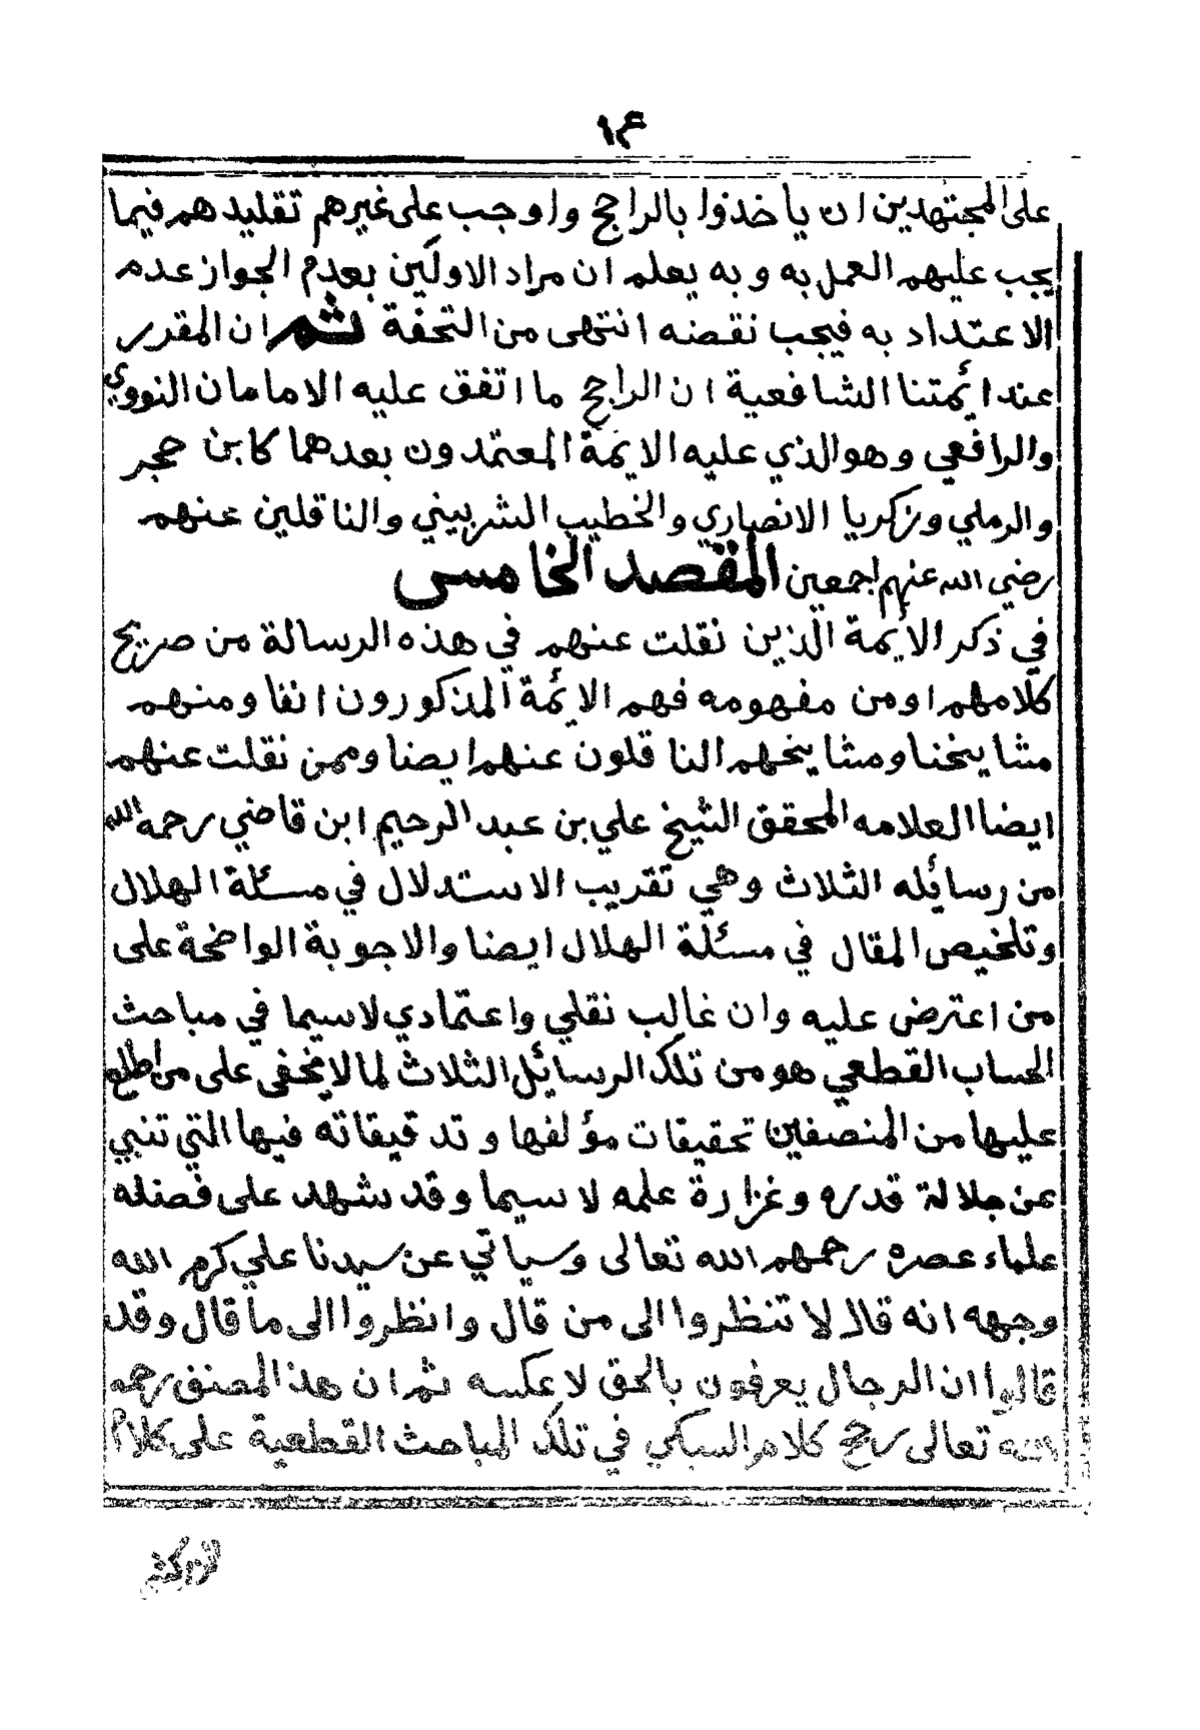 ١٤
على المجتهدين ان ياخذوا بالراجح واوجب على غيرهم تقليدهم فيما
يجب عليهم العمل به وبه يعلم ان مراد الاولين بعدم الجواز عدم
الاعتداد به فيجب نقضه انتهى من التحفة ثم ان المقرر
عند ائمتنا الشافعية ان الراجح ما اتفق عليه الامامان النووي
والرافعي وهو الذي عليه الايمة المعتمدون بعدهما كابن حجر
والرملي وزكريا الانصاري والخطيب الشربيني والناقلين عنهم
رضي الله عنهم اجمعين المقصد الخامس
في ذكر الأيمة الذين نقلت عنهم في هذه الرسالة من صريح
كلامهم اومن مفهومه فهم الائمة المذكورون انفا ومنهم
مشايخنا ومشايخهم الناقلون عنهم ايضا وممن نقلت عنهم
ايضا العلامه المحقق الشيخ علي بن عبد الرحيم ابن قاضي رحمه الله
من رسائله الثلاث وهي تقريب الاستدلال في مسئلة الهلال
وتلخيص المقال في مسئلة الهلال ايضا والاجوبة الواضحة على
من اعترض عليه وان غالب نقلي واعتمادي لاسيما في مباحث
الحساب القطعي هو من تلك الرسائل الثلاث لما لا يخفى على من اطلع
عليها من المنصفين تحقيقات مؤلفها وتدقيقاته فيها التي تنبي
عن جلالة قدره وغزارة علمه لاسيما وقد شهد على فضله
علماء عصره رحمهم الله تعالى وسياتي عن سيدنا علي كرم الله
وجهه انه قال لا تنظروا الى من قال وانظروا الى ما قال وقد
قالوا ان الرجال يعرفون بالحق لا عكسه ثم ان هذا المصنف رحمه
الله تعالى رجح كلام السبكي في تلك المباحث القطعية على كلام